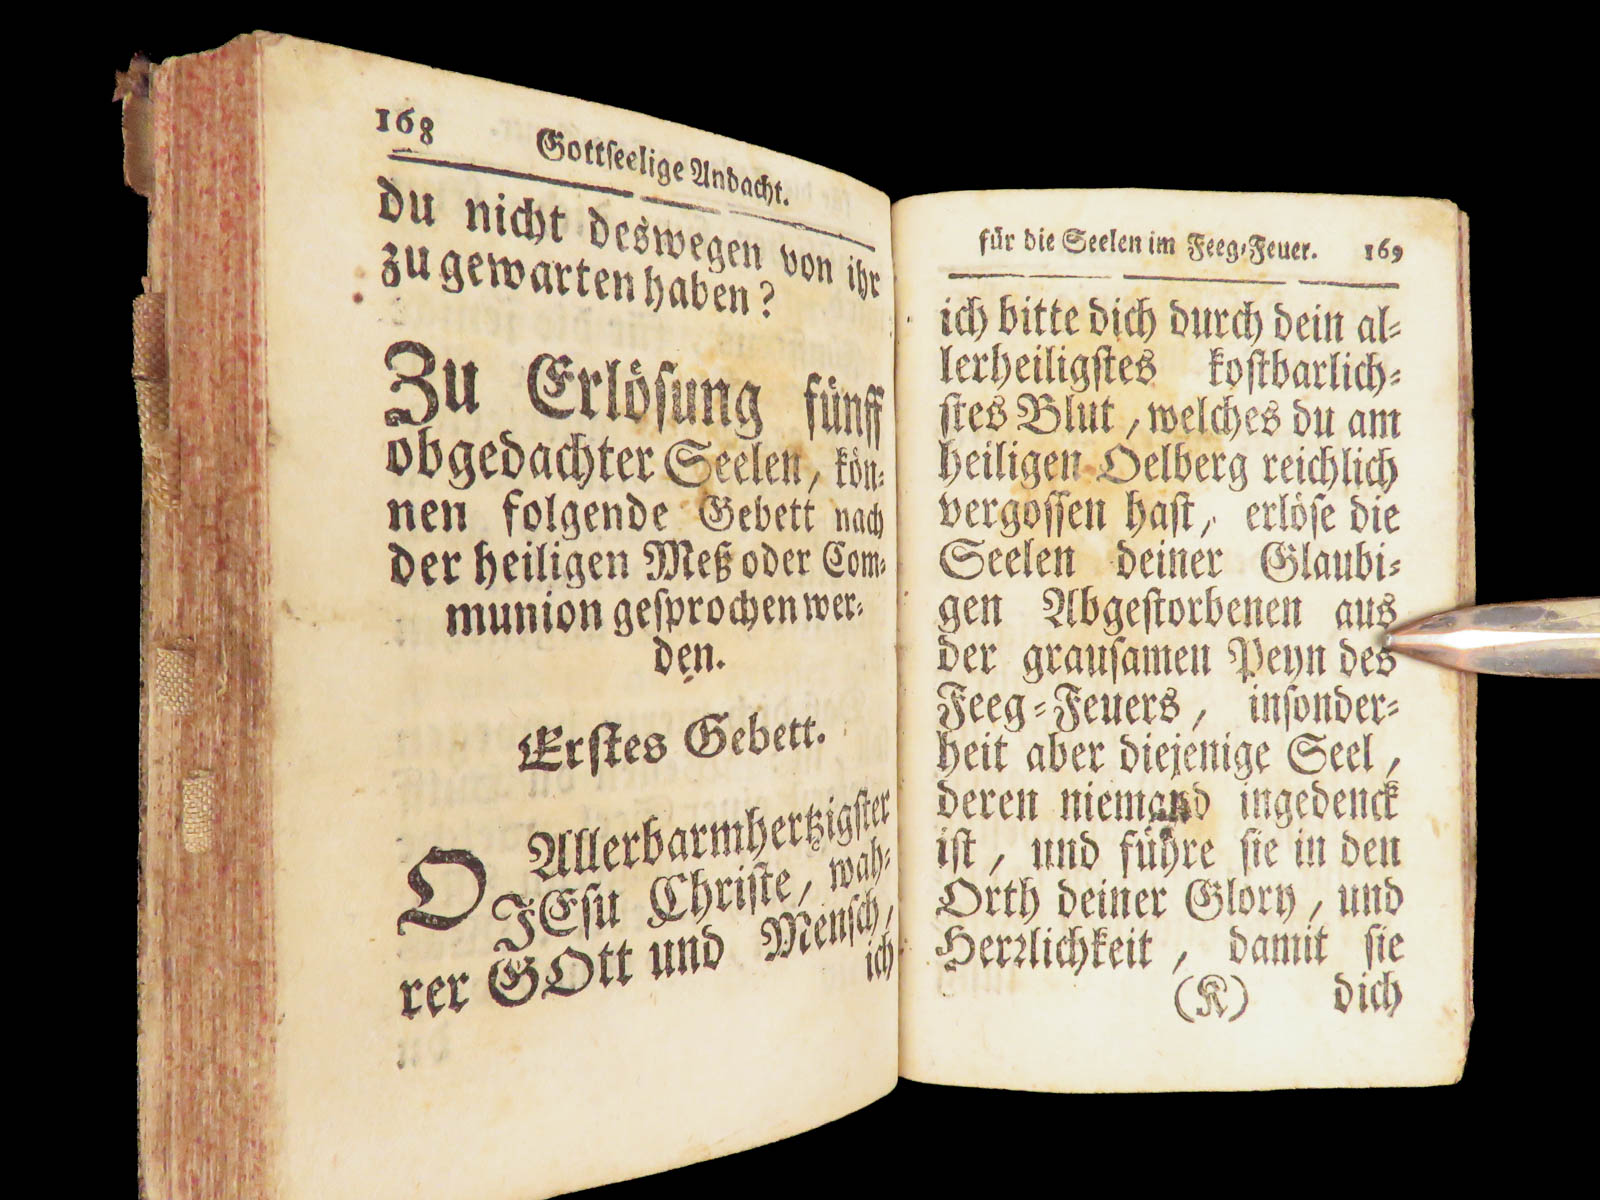 168
Gottseelige Andacht.
du nicht deswegen von ihr
zu gewarten haben?
Zu Erlösung fünff
obgedachter Seelen, kön-
nen folgende Gebett nach
der heiligen Meß oder Com-
munion gesprochen wer-
den.
Erstes Gebett.
O Allerbarmhertzigster
JEsu Christe, wah-
rer GOtt und Mensch,
ich
für die Seelen im Feeg-Feuer. 169
ich bitte dich durch dein al-
lerheiligstes kostbarlich-
stes Blut, welches du am
heiligen Oelberg reichlich
vergossen hast, erlöse die
Seelen deiner Glaubi-
gen Abgestorbenen aus
der grausamen Peyn des
Feeg-Feuers, insonder-
heit aber diejenige Seel,
deren niemand ingedenck
ist, und führe sie in den
Orth deiner Glory, und
Herrlichkeit, damit sie
(K) dich